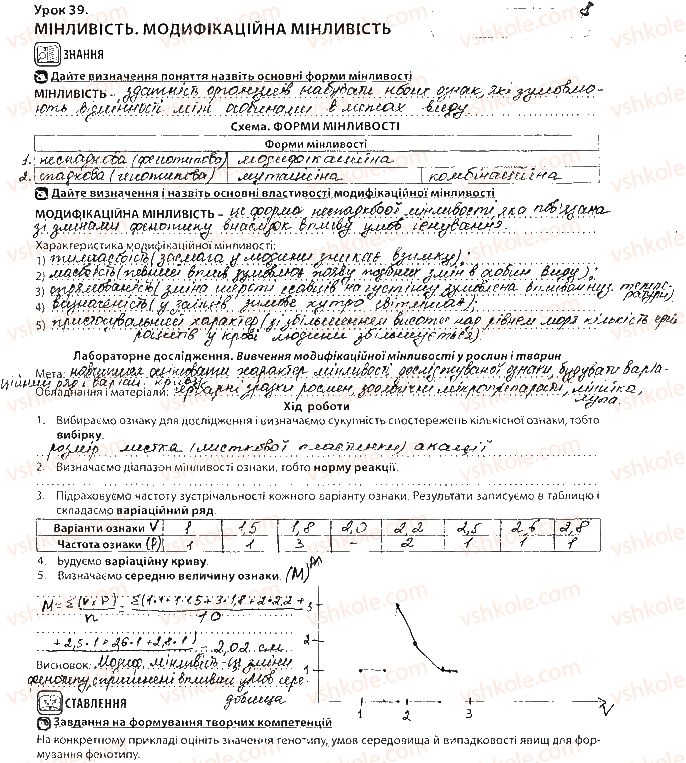 Урок 39.
МІНЛИВІСТЬ. МОДИФІКАЦІЙНА МІНЛИВІСТЬ
ЗНАННЯ
Дайте визначення поняття назвіть основні форми мінливості
МІНЛИВІСТЬ – здатність організмів набувати нових ознак, які зумовлю-
ють відмінності між особинами в межах виду.
Схема. ФОРМИ МІНЛИВОСТІ
Форми мінливості
1. неспадкова (фенотипова) модифікаційна
2. спадкова (генотипова) мутаційна комбінаційна
Дайте визначення і назвіть основні властивості модифікаційної мінливості
МОДИФІКАЦІЙНА МІНЛИВІСТЬ – це форма неспадкової мінливості, яка пов'язана
зі змінами фенотипу внаслідок впливу умов існування.
Характеристика модифікаційної мінливості:
1) тимчасовість (засмага у людини зникає взимку);
2) масовість (певний вплив зумовлює появу подібних змін в особин виду);
3) спрямованість (зміна шерсті ссавців на густішу зумовлена впливом низ. темпе-
ратури)
4) визначеність (у зайців зимове хутро світлішає);
5) пристосувальний характер (зі збільшенням висоти над рівнем моря кількість ерит-
роцитів у крові людини збільшується).
Лабораторне дослідження. Вивчення модифікаційної мінливості у рослин і тварин
Мета: навчитися оцінювати характер мінливості досліджуваної ознаки, будувати варіа-
ційний ряд і варіац. криву
Обладнання і матеріали: гербарні зразки рослин, зоологічні мікропрепарати, лінійка,
лупа.
Хід роботи
1. Вибираємо ознаку для дослідження і визначаємо сукупність спостережень кількісної ознаки, тобто
вибірку.
розмір листка (листкової пластинки) акації
2. Визначаємо діапазон мінливості ознаки, тобто норму реакції.
3. Підраховуємо частоту зустрічальності кожного варіанту ознаки. Результати записуємо в таблицю і
складаємо варіаційний ряд.
Варіанти ознаки V 1 1,5 1,8 2,0 2,2 2,5 2,6 2,8
Частота ознаки (P) 1 1 3 – 2 1 1 1
4. Будуємо варіаційну криву.
5. Визначаємо середню величину ознаки. (M)
M = Σ(V·P) / n = Σ(1·1+1·1,5+3·1,8+2·2,2+ / 10
+2,5·1+2,6·1+2,8·1) = 2,02 см.
P
3
2
1
1 2 3 V
Висновок: Модиф. мінливість – це зміни
фенотипу, спричинені впливом умов сере-
довища
СТАВЛЕННЯ
Завдання на формування творчих компетенцій
На конкретному прикладі оцініть значення генотипу, умов середовища й випадковості явищ для фор-
мування фенотипу.
vshkole.com